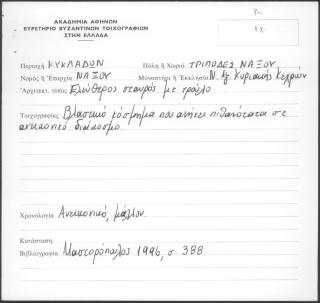 ΑΚΑΔΗΜΙΑ ΑΘΗΝΩΝ
ΕΥΡΕΤΗΡΙΟ ΒΥΖΑΝΤΙΝΩΝ ΤΟΙΧΟΓΡΑΦΙΩΝ
ΣΤΗΝ ΕΛΛΑΔΑ
XX
Περιοχή ΚΥΚΛΑΔΩΝ Πόλη ἤ Χωριό ΤΡΙΠΟΔΕΣ ΝΑΞΟΥ
Νομός ἤ Ἐπαρχία ΝΑΞΟΥ Μοναστήρι ἤ Ἐκκλησία Ν. Ἁγ Κυριακής
Ἀρχιτεκτ. τύπος Ελεύθερος σταυρός με τρούλο
Τοιχογραφίες Βλαστικό κόσμημα που ανήκει πιθανότατα σε
ανεικονικό διάκοσμο.
Χρονολογία Ανεικονικό, μάλλον.
Κατάσταση
Βιβλιογραφία Μαστορόπουλος 1996, σ. 388